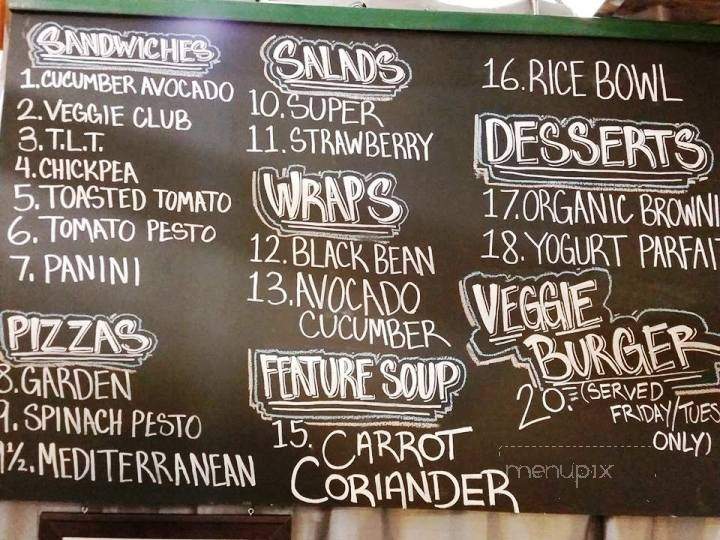 SANDWICHES
1. CUCUMBER AVOCADO
2. VEGGIE CLUB
3. T.L.T.
4. CHICKPEA
5. TOASTED TOMATO
6. TOMATO PESTO
7. PANINI
PIZZAS
8. GARDEN
9. SPINACH PESTO
9½. MEDITERRANEAN
SALADS
10. SUPER
11. STRAWBERRY
WRAPS
12. BLACK BEAN
13. AVOCADO
CUCUMBER
FEATURE SOUP
15. CARROT
CORIANDER
16. RICE BOWL
DESSERTS
17. ORGANIC BROWNI
18. YOGURT PARFAIT
VEGGIE
BURGER
20. (SERVED
FRIDAY/TUES
ONLY)
menupix